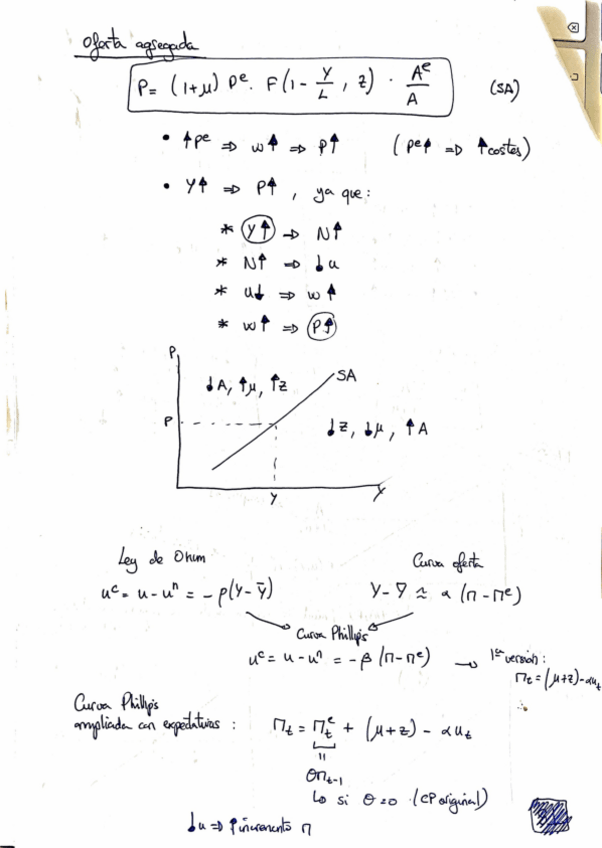 Oferta agregada
P = (1+μ) Pᵉ · F(1 - Y/L, z) · Aᵉ/A (SA)
• ↑Pᵉ ⇒ w↑ ⇒ P↑ (Pᵉ↑ ⇒ ↑costes)
• Y↑ ⇒ P↑, ya que:
* Y↑ ⇒ N↑
* N↑ ⇒ ↓u
* u↓ ⇒ w↑
* w↑ ⇒ P↑
P
↓A, ↑μ, ↑z SA
P ↓z, ↓μ, ↑A
Y Y
Ley de Okun Curva oferta
uᶜ = u - uⁿ = -ρ(Y - Ȳ) Y - Ȳ ≈ α (π - πᵉ)
Curva Phillips
uᶜ = u - uⁿ = -β (π - πᵉ) → 1ª versión:
πt = (μ+z) - αut
Curva Phillips
ampliada con expectativas : πt = πᵉt + (μ+z) - αut
=
θπt-1
↳ si θ=0 (CP original)
↓u ⇒ ↑incremento π